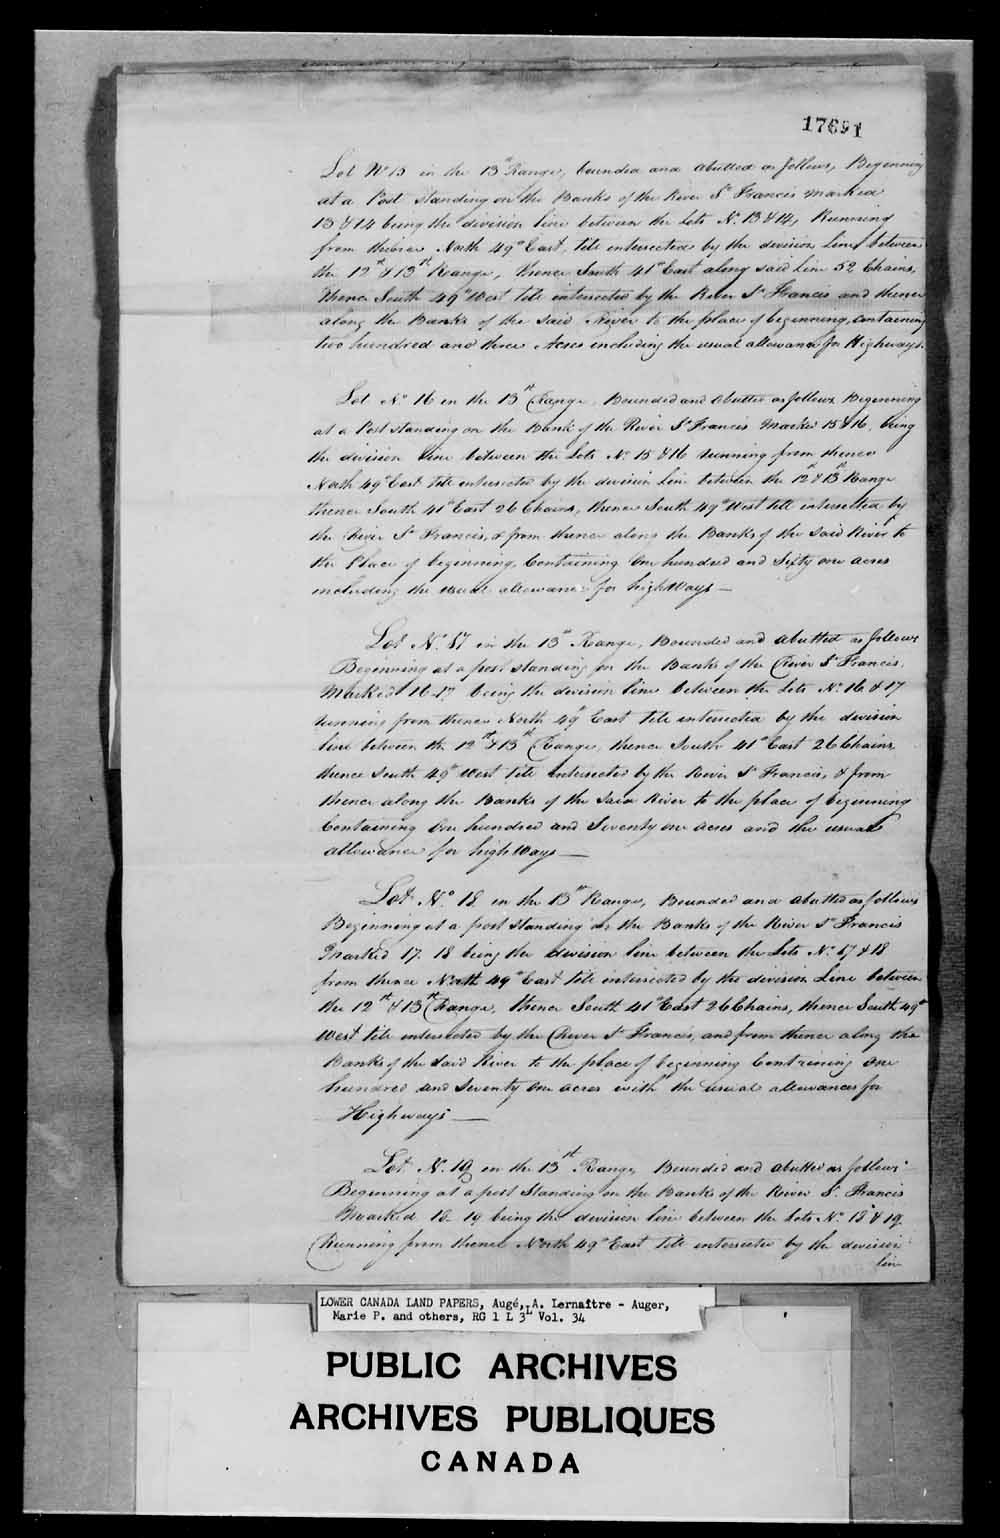 17691
Lot No 15 in the 13th Range, bounded and abutted as follows, Beginning
at a Post standing on the Banks of the River St Francis marked
13 & 14 being the division line between the lots No. 13 & 14, Running
from thence North 49° East, till intersected by the division line between
the 12th & 13th Range, thence South 41° East along said line 52 Chains,
thence South 49° West till intersected by the River St Francis and thence
along the Banks of the said River to the place of beginning, containing
two hundred and three Acres including the usual allowance for Highways.
Lot No 16 in the 13th Range, Bounded and abutted as follows Beginning
at a Post standing on the Bank of the River St Francis Marked 15 & 16, being
the division line between the Lots No. 15 & 16 running from thence
North 49° East till intersected by the division line between the 12th & 13th Range
thence South 41° East 26 Chains, thence South 49° West till intersected by
the River St Francis, & from thence along the Banks of the said River to
the Place of beginning, Containing One hundred and Sixty one acres
including the usual allowance for highWays —
Lot No. 17 in the 13th Range, Bounded and abutted as follows
Beginning at a post standing on the Banks of the River St Francis,
Marked 16-17 being the division line between the Lots No. 16 & 17
running from thence North 49° East till intersected by the division
line between the 12th & 13th Range, thence South 41° East 26 Chains,
thence South 49° West till intersected by the River St Francis, & from
thence along the Banks of the said River to the place of beginning
Containing One hundred and Seventy one acres and the usual
allowance for highWays —
Lot No 18 in the 13th Range, Bounded and abutted as follows
Beginning at a post Standing on the Banks of the River St Francis
Marked 17. 18 being the division line between the Lots No. 17 & 18
from thence North 49° East till intersected by the division Line between
the 12th & 13th Range, thence South 41° East 26 Chains, thence South 49°
West till intersected by the River St Francis, and from thence along the
Banks of the said River to the place of beginning Containing One
hundred and Seventy One acres with the usual allowances for
Highways —
Lot No. 19 in the 13th Range, Bounded and abutted as follows
Beginning at a post Standing on the Banks of the River St. Francis
Marked 18. 19 being the division line between the Lots No. 18 & 19.
Running from thence North 49° East till intersected by the division
line
LOWER CANADA LAND PAPERS, Augé, A. Lernaître - Auger,
Marie P. and others, RG 1 L 3L Vol. 34
PUBLIC ARCHIVES
ARCHIVES PUBLIQUES
CANADA